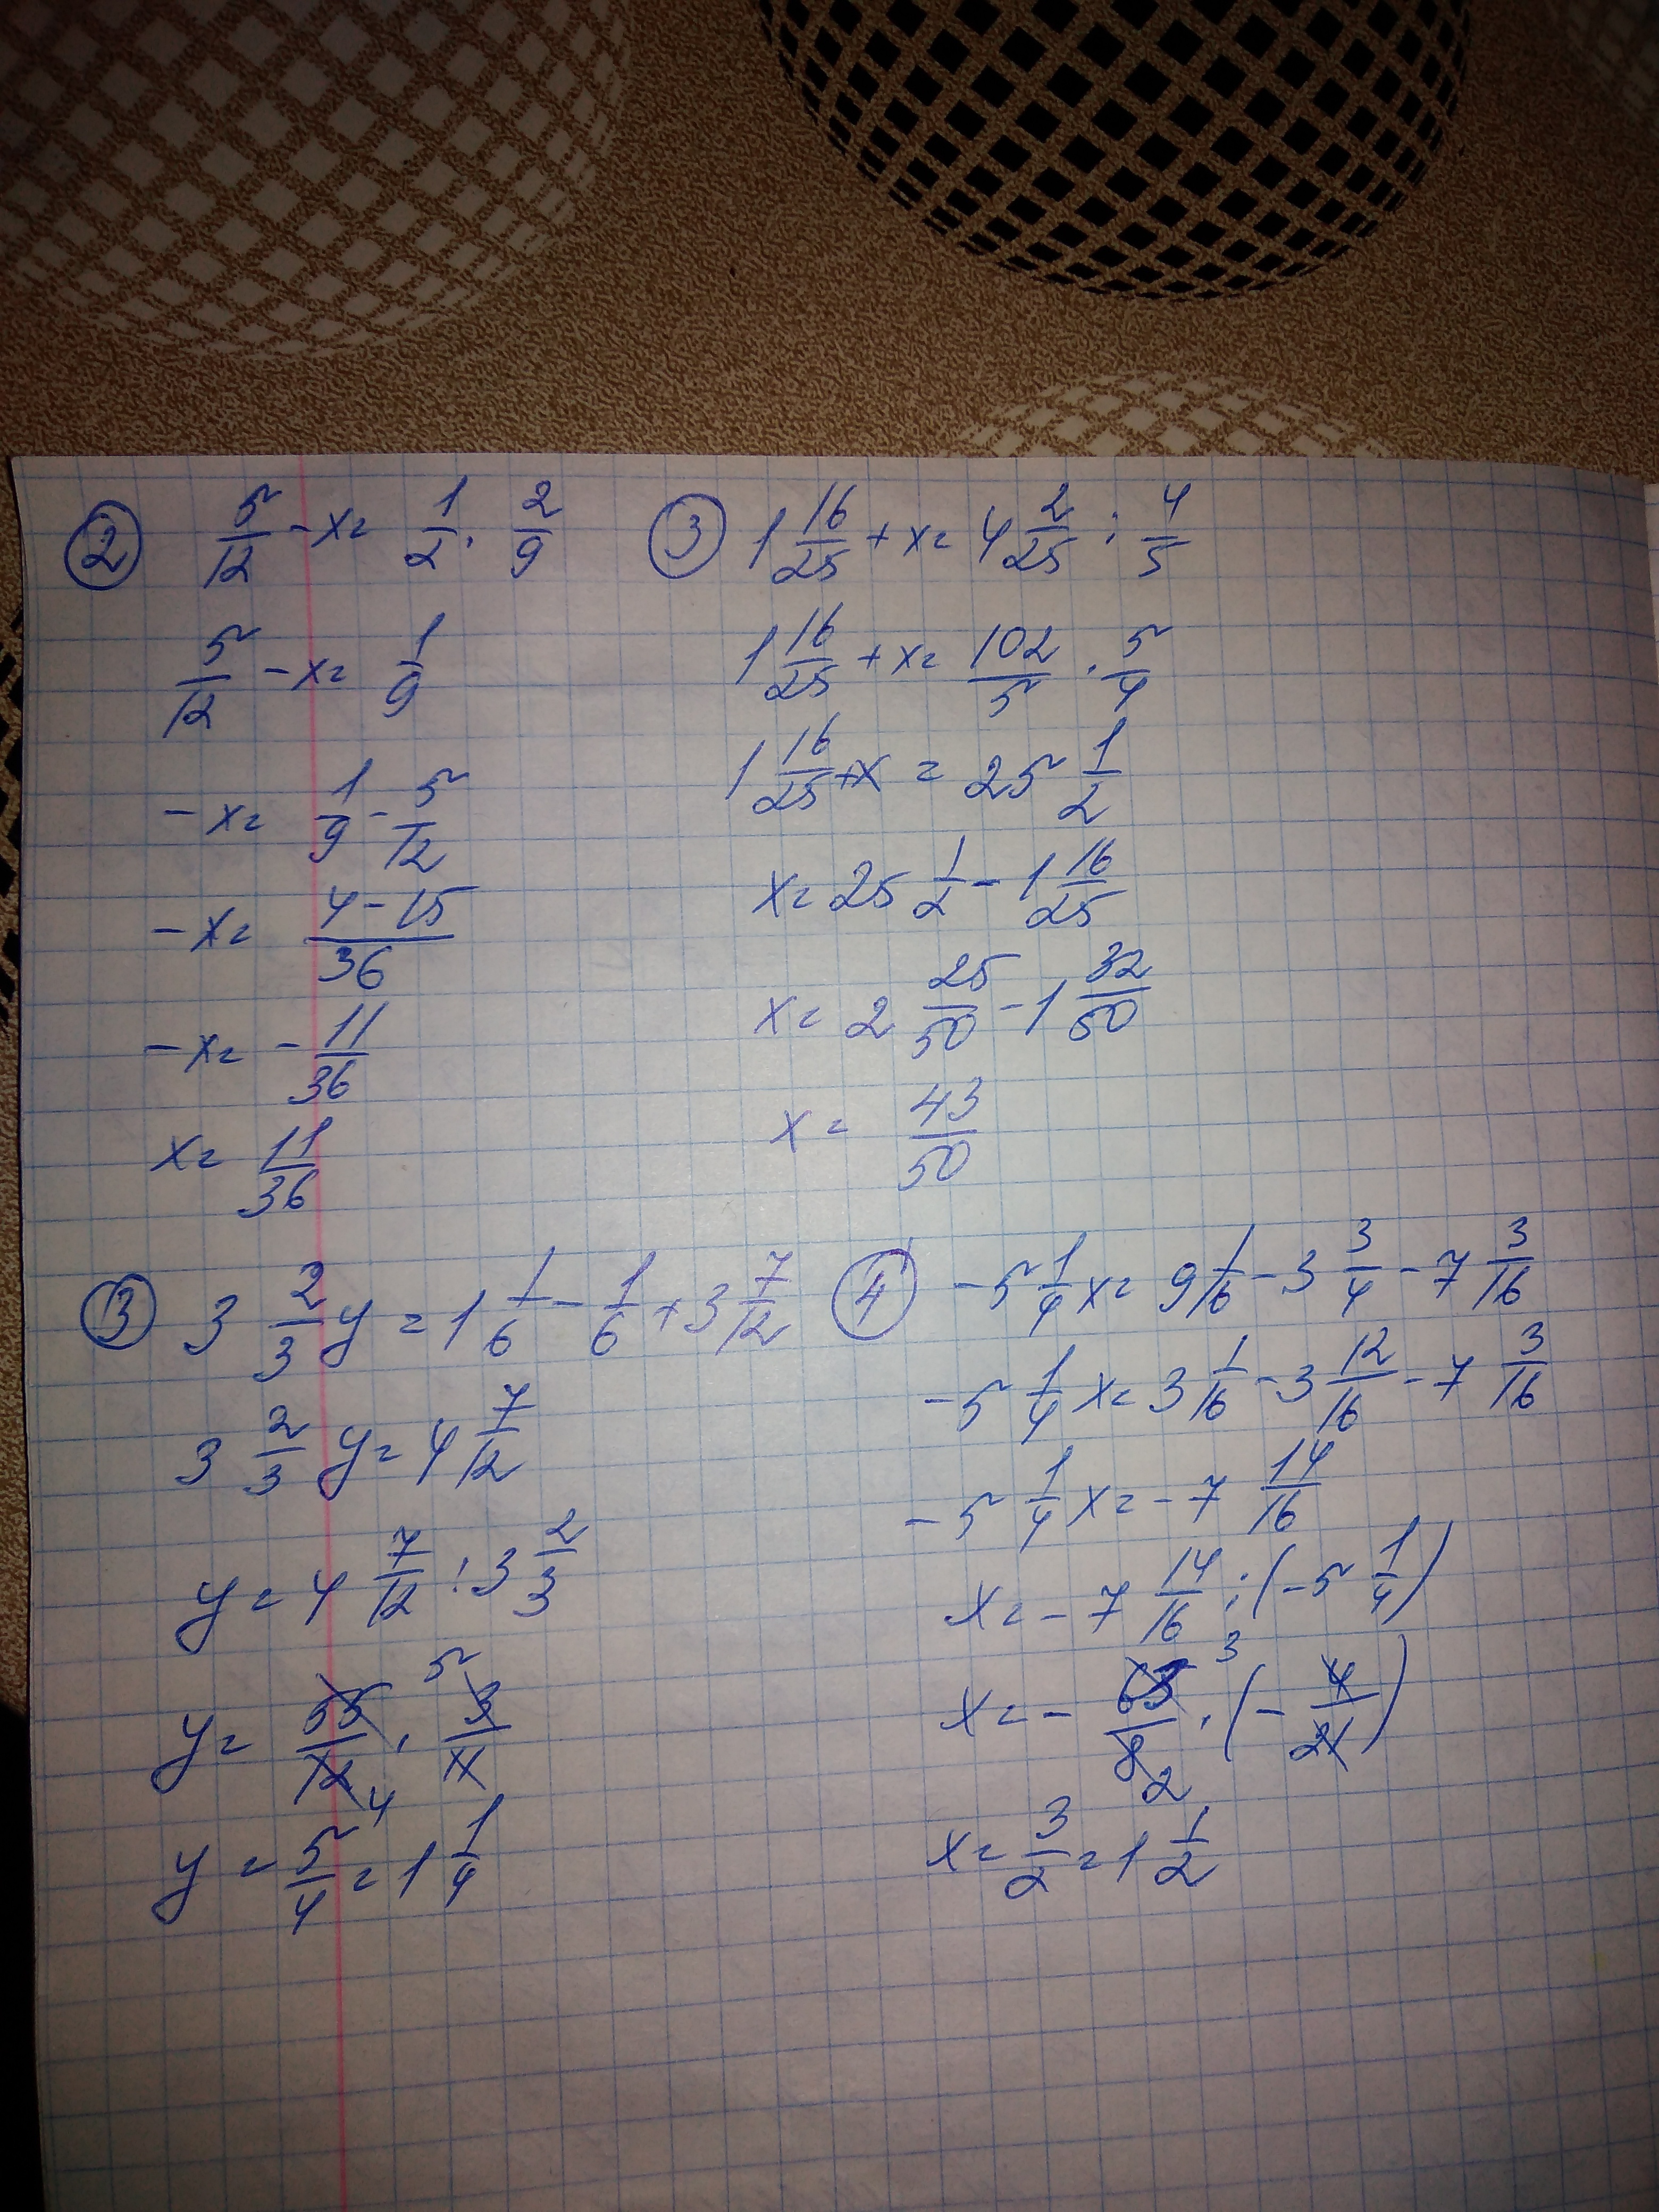 ② 5/12 - x = 1/2 · 2/9
5/12 - x = 1/9
- x = 1/9 - 5/12
- x = (4 - 15)/36
- x = - 11/36
x = 11/36
③ 1 16/25 + x = 4 2/25 : 4/5
1 16/25 + x = 102/5 · 5/4
1 16/25 + x = 25 1/2
x = 25 1/2 - 1 16/25
x = 2 25/50 - 1 32/50
x = 43/50
⑬ 3 2/3 y = 1 1/6 - 1/6 + 3 7/12
3 2/3 y = 4 7/12
y = 4 7/12 : 3 2/3
y = 55/12 4 · 5 3/11
y = 5/4 = 1 1/4
④ - 5 1/4 x = 9 1/16 - 3 3/4 - 7 3/16
- 5 1/4 x = 3 1/16 - 3 12/16 - 7 3/16
- 5 1/4 x = - 7 14/16
x = - 7 14/16 : (- 5 1/4)
x = - 63 3/8 2 · (- 4/21)
x = 3/2 = 1 1/2